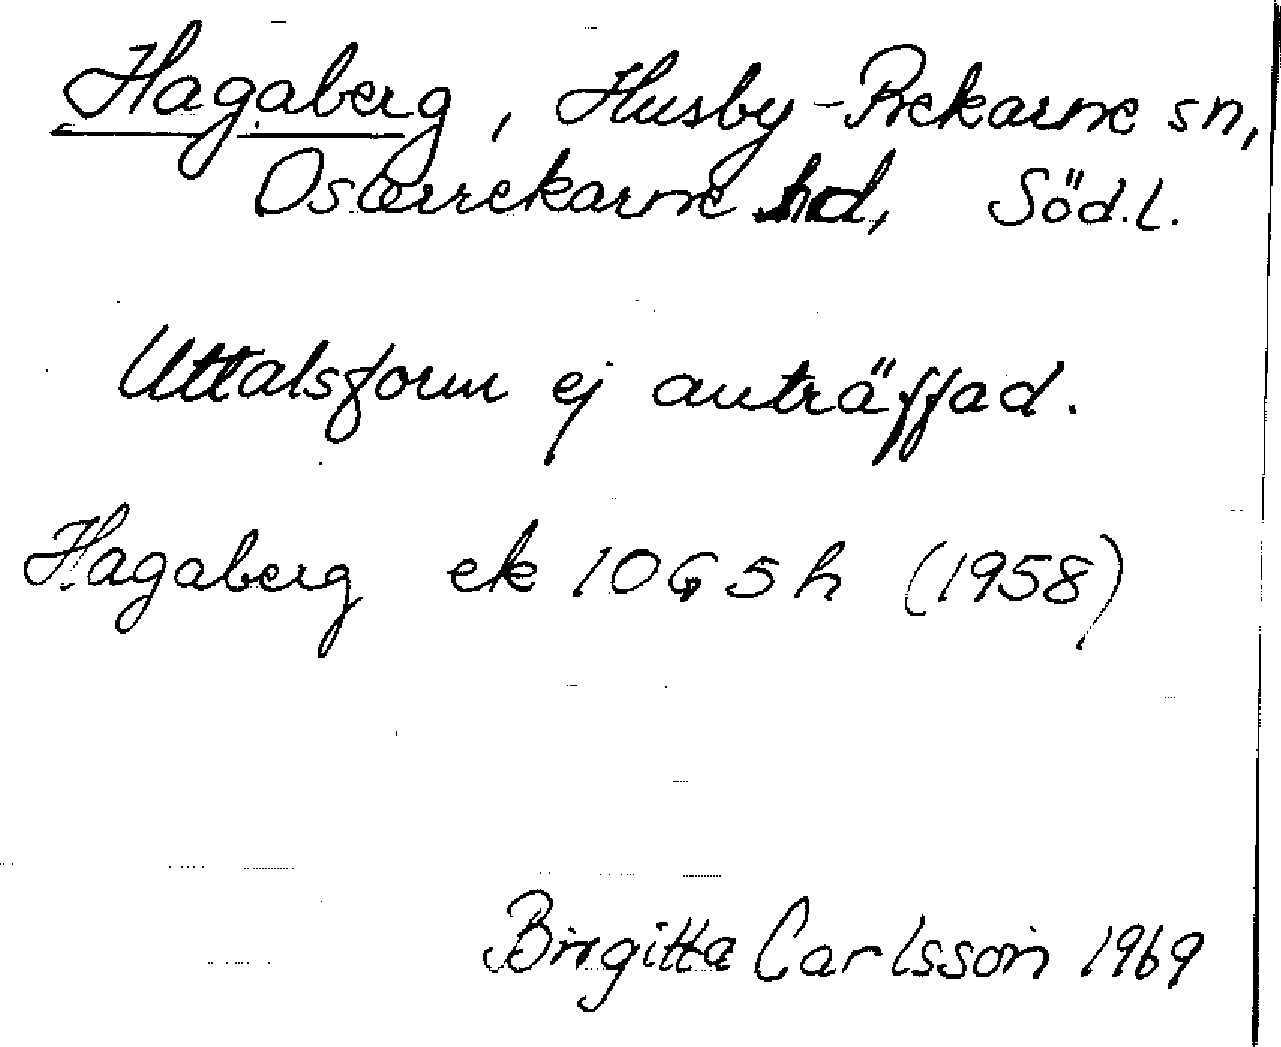 Hagaberg, Husby-Rekarne sn,
Österrekarne hd, Söd.l.
Uttalsform ej anträffad.
Hagaberg ek 10G5h (1958)
Birgitta Carlsson 1969